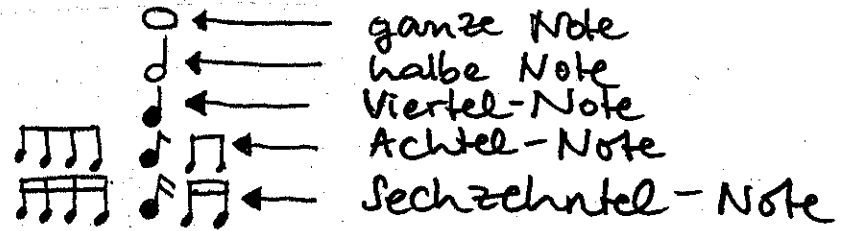 ganze Note
halbe Note
Viertel-Note
Achtel-Note
Sechzehntel-Note